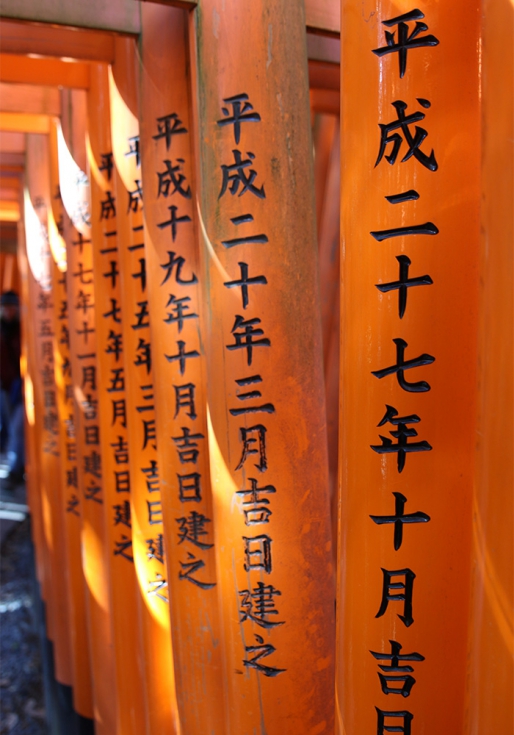 平成二十七年十月吉日
平成二十年三月吉日建之
平成十九年十月吉日建之
平成二十五年三月吉日建之
平成二十七年五月吉日建之
十七年十一月吉日建之
年五月吉日建之